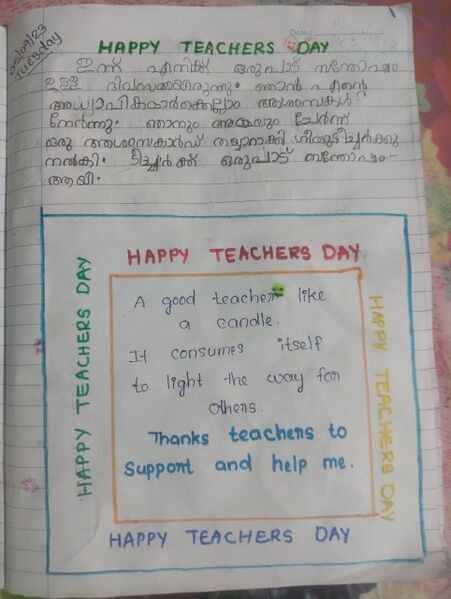 05/09/23
Tuesday
HAPPY TEACHERS DAY
ഇന്ന് എനിക്ക് ഒരുപാട് സന്തോഷം
ഉള്ള ദിവസമായിരുന്നു. ഞാൻ എന്റെ
അധ്യാപികമാർക്കെല്ലാം ആശംസകൾ
നേർന്നു. ഞാനും അമ്മയും ചേർന്ന്
ഒരു ആശംസകാർഡ് തയ്യാറാക്കി ടീച്ചർക്കു
നൽകി. ടീച്ചർക്ക് ഒരുപാട് സന്തോഷം-
ആയി.
HAPPY TEACHERS DAY
HAPPY TEACHERS DAY
A good teacher like
a candle.
It consumes itself
to light the way for
others.
Thanks teachers to
Support and help me.
HAPPY TEACHERS DAY
HAPPY TEACHERS DAY